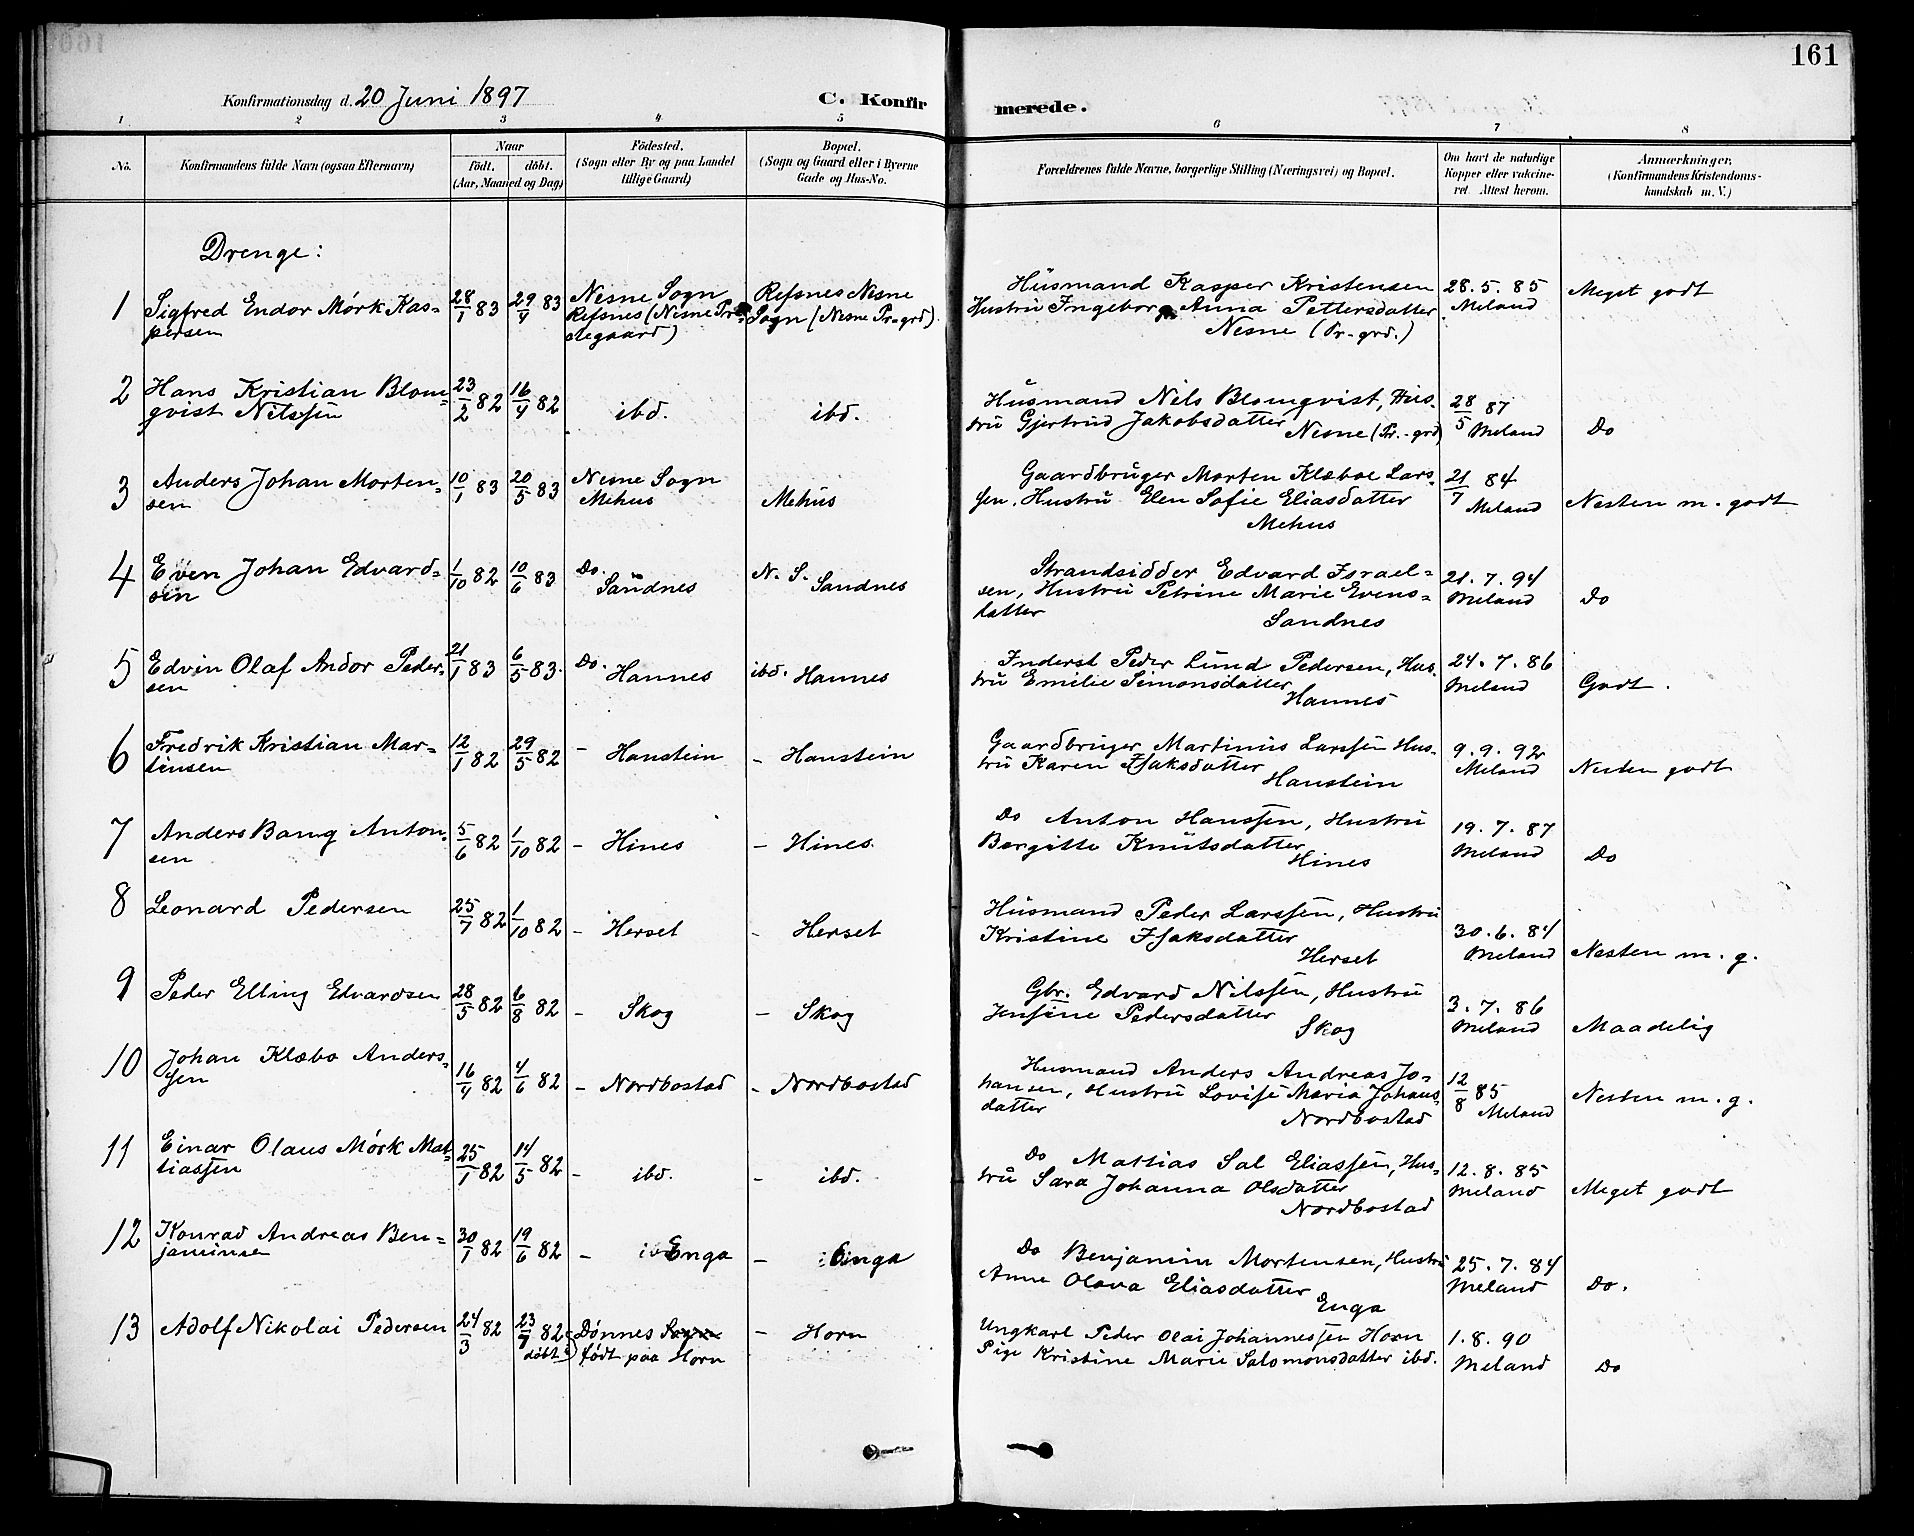 161
Konfirmationsdag d. 20 Juni 1897
C. Konfirmerede.
1 2 3 4 5 6 7 8
No.
Konfirmandens fulde Navn (ogsaa Efternavn)
Naar
födt. döbt.
(Aar, Maaned og Dag)
Födested.
(Sogn eller By og paa Landet
tillige Gaard)
Bopæl.
(Sogn og Gaard eller i Byerne
Gade og Hus-No.
Forældrenes fulde Navne, borgerlige Stilling (Næringsvei) og Bopæl.
Om havt de naturlige
Kopper eller vakcine-
ret. Attest herom.
Anmærkninger.
(Konfirmandens Kristendoms-
kundskab m. V.)
Drenge:
1 Sigfred Endor Mörk Kas-
persen
28/1 83 29/4 83
Nesne Sogn
Refsnes (Nesne Præ-
stegaard)
Refsnes Nesne
Sogn (Nesne Pr-grd)
Husmand Kasper Kristensen
Hustru Ingeborg Anna Pettersdatter
Nesne (Pr-grd.)
28. 5. 85
Meland
Meget godt
2 Hans Kristian Blom-
qvist Nilssen
23/2 82 16/4 82
ibd.
ibd.
Husmand Nils Blomqvist, Hus-
tru Gjertrud Jakobsdatter
Nesne (Pr.-grd)
28/5 87
Meland
Do
3 Anders Johan Morten-
sen
10/1 83 20/5 83
Nesne Sogn
Mehus
Mehus
Gaardbruger Morten Klæboe Lars-
sen. Hustru Elen Sofie Eliasdatter
Mehus
21/7 84
Meland
Nesten m. godt
4 Even Johan Edvard-
sen
1/10 82 10/6 83
Do.
Sandnes
N. S. Sandnes
Strandsidder Edvard Israel-
sen, Hustru Petrine Marie Evens-
datter
Sandnes
21. 7. 94
Meland
Do
5 Edvin Olaf Andor Peder-
sen
21/1 83 6/5 83.
Do. Hannes
ibd. Hannes
Inderst Peder Lund Pedersen, Hus-
tru Emilie Simonsdatter
Hannes
24. 7. 86
Meland
Godt.
6 Fredrik Kristian Mar-
tinsen
12/1 82 29/5 82
- Hanstein
- Hanstein
Gaardbruger Martinus Larssen Hus-
tru Karen Isaksdatter
Hanstein
9. 9. 92
Meland
Nesten godt
7 Anders Bang Anton-
sen
5/6 82 1/10 82
- Hines
- Hines.
Do Anton Hanssen, Hustru
Bergitte Knutsdatter
Hines
19. 7. 87
Meland
Do
8 Leonard Pedersen
25/7 82 1/10 82
- Herset
- Herset
Husmand Peder Larssen, Hustru
Kristine Isaksdatter
Herset
30. 6. 84
Meland
Nesten m. g.
9 Peder Elling Edvardsen
28/5 82 6/8 82
- Skog
- Skog
Gbr. Edvard Nilssen, Hustru
Jensine Pedersdatter
Skog
3. 7. 86
Meland
Maadelig
10 Johan Klæbo Anders-
sen
16/4 82 4/6 82
- Nordbostad
- Nordbostad
Husmand Anders Andreas Jo-
hansen, Hustru Lovise Maria Johans-
datter
Nordbostad
12/8 85
Meland
Nesten m. g.
11 Einar Olaus Mörk Mat-
tiassen
25/1 82 14/5 82
- ibd.
- ibd.
Do Mattias Sal Eliassen, Hus-
tru Sara Johanna Olsdatter
Nordbostad
12. 8. 85
Meland
Meget godt
12 Konrad Andreas Ben-
jaminsen
30/1 82 19/6 82
- Enga
- Enga
Do Benjamin Mortensen, Hustru
Anne Olava Eliasdatter
Enga
25. 7. 84
Meland
Do.
13 Adolf Nikolai Pedersen
24/3 82 23/7 82
döbt i
Dønnes Sogn
født paa Horn
- Horn
Ungkarl Peder Olai Johannessen Horn
Pige Kristine Marie Salomonsdatter ibd.
1. 8. 90
Meland
Do